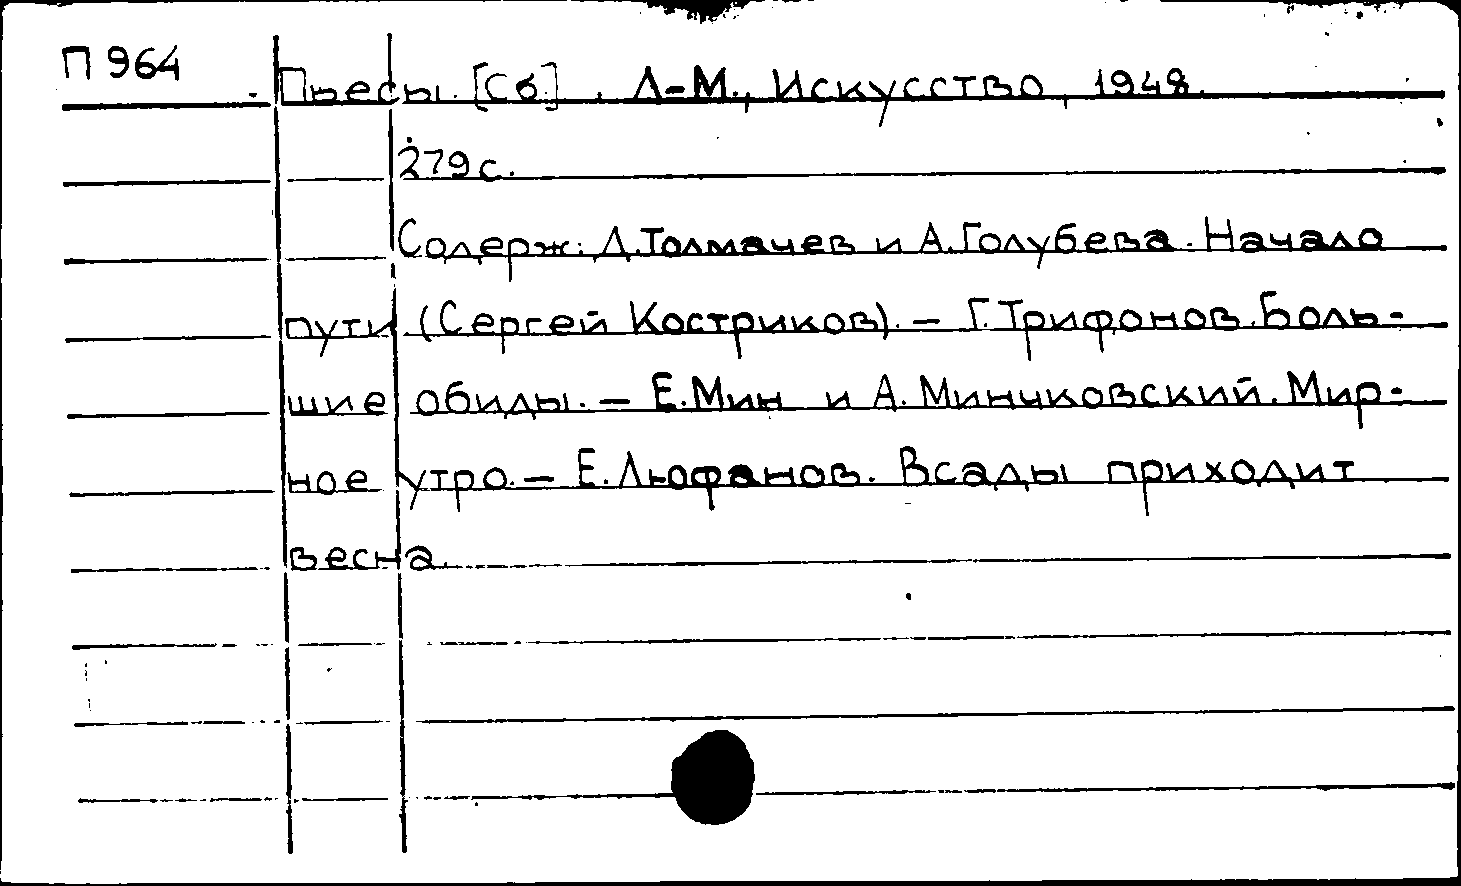 П 964
Пьесы. [Сб.]. Л-М., Искусство, 1948.
279 с.
Содерж: Д.Толмачев и А.Голубева. Начало
пути (Сергей Костриков). – Г.Трифонов. Боль-
шие обиды. – Е.Мин и А. Минчковский. Мир-
ное утро. – Е.Люфанов. В сады приходит
весна.